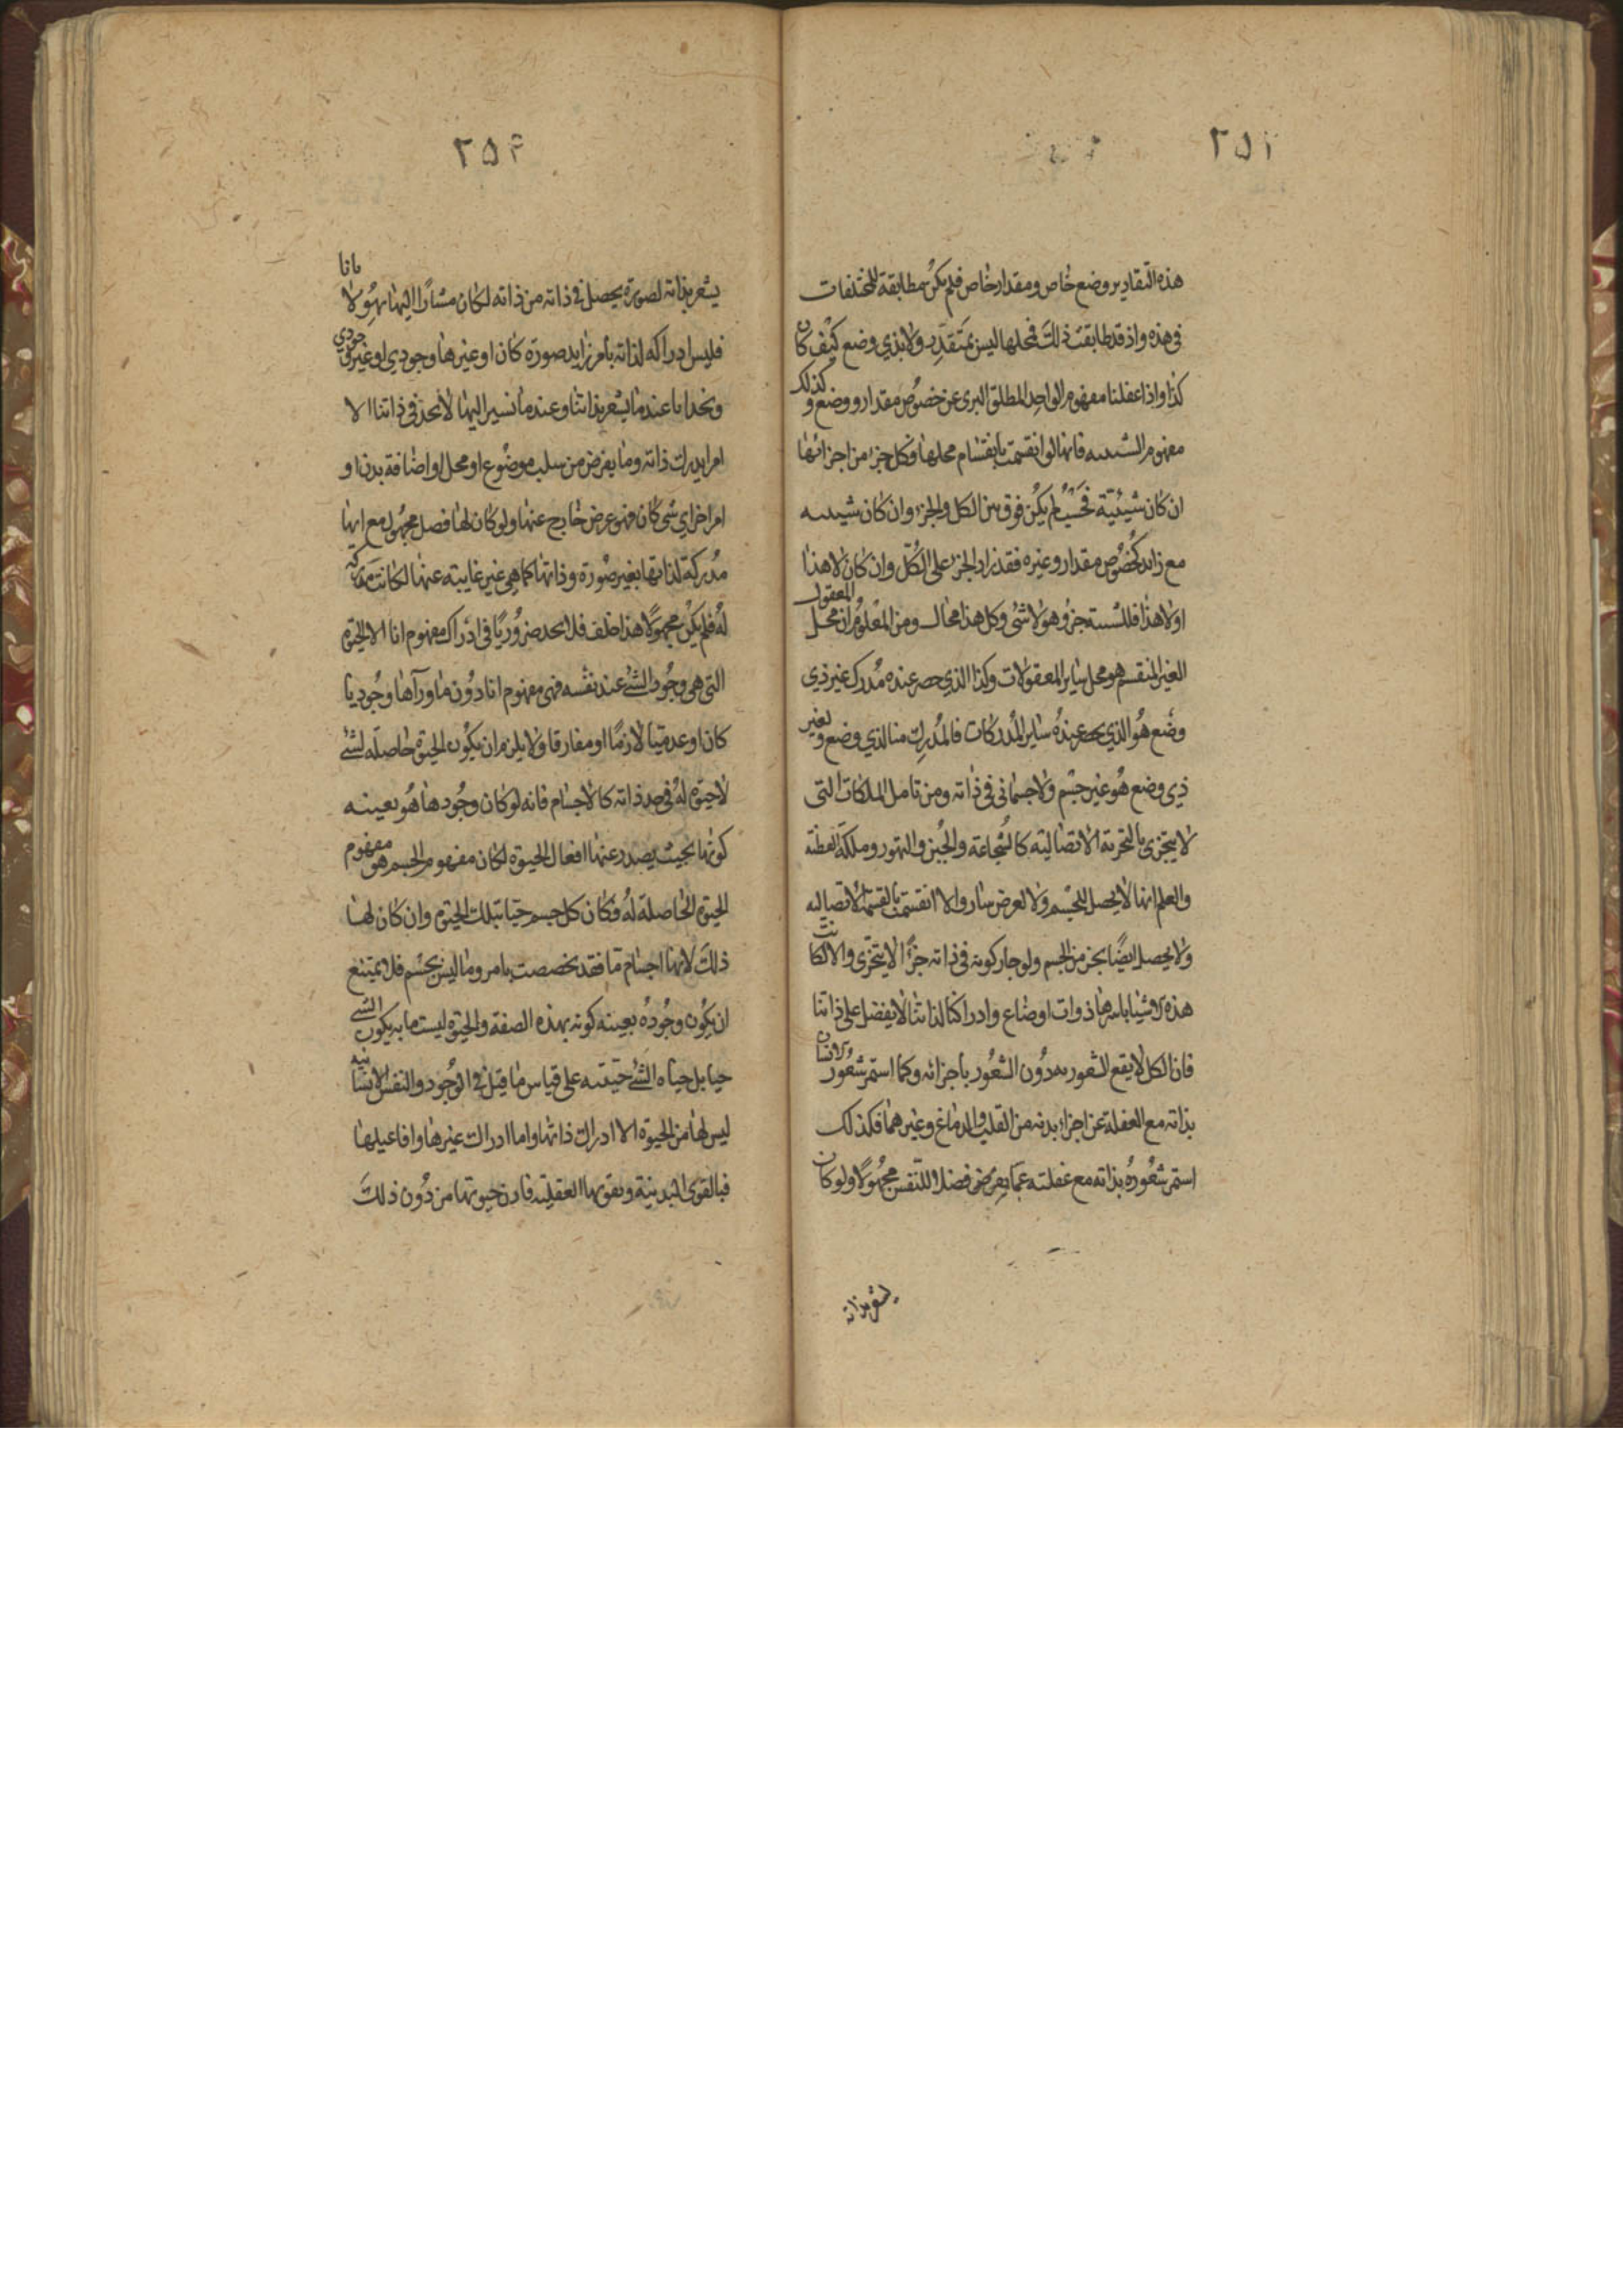 ٢٥١
هذه التقادير وضع خاص ومقدار خاص فلم يكن مطابقة للمختلفات
فى هذه واذ قد طابقت ذلك فمحلها ليس بمتقدر ولا بذي وضع كيف كان
كذا واذا عقلنا مفهوم الواحد المطلق البرى عن خصوص مقدار ووضع وكذلك
مفهوم الشيييه فانها لو انقسمت بانقسام محلها فكل جزء من اجزائها
ان كان شيئية فحسب لم يكن فرق بين الكل والجزء وان كان شيييه
مع زائد كخصوص مقدار وغيره فقد زاد الجزء على الكل وان كان لا هذا
اولا هذا فللشيييه جزو هو لا شئ وكل هذا محال ومن المعلوم ان محل المعقول
الغير المنقسم هو محل ساير المعقولات وكذا الذي حصر عنده مدرك غير ذي
وضع هو الذي يحصر عنده ساير المدركات فالمدرك منا لذي وضع ولغير
ذي وضع هو غير جسم ولا جسمانى فى ذاته ومن تامل الملكات التى
لا يتجزى بالتجزية الاتصالية كالشجاعة والجبن والتهور وملكة الفطنة
والعلم انها لا يحصل للجسم ولا لعرض سار والا انقسمت بالقسمة الاتصاليه
ولا يحصل ايضا بجزء من الجسم ولو جاز كونه فى ذاته جزءا لا يتجزى والا لكانت
هذه الاشيا باسرها ذوات اوضاع وادراكنا لذاتنا لا يفضل على ذاتنا
فان الكل لا يقع الشعور به دون الشعور باجزائه وكما استمر شعور الانسان
بذاته مع الغفلة عن اجزاء بدنه من القلب والدماغ وغيرهما فكذلك
استمر شعوره بذاته مع غفلته عما يفرض فضلا للنفس مجهولا ولو كان
يشعر بذاته
٢٥٢
يشعر بذاته لصورة يحصل فى ذاته من ذاته لكان مشارا اليها بهو لا بانا
فليس ادراكه لذاته بامر زايد صورة كان او غيرها وجودي او غير وجودي
ونجد انا عندما يشعر بذاتنا وعندما نسير اليها لا نجد فى ذاتنا الا
امرا يدرك ذاته وما يفرض من سلب موضوع او محل او اضافة بدن او
امر اخر اي شى كان فهو عرض خارج عنها ولو كان لها فصل مجهول مع انها
مدركة لذاتها بغير صورة وذاتها كما هى غير غايبة عنها لكانت مدركة
له فلم يكن مجهولا هذا خلف فلا نجد ضروريا فى ادراك مفهوم انا الا الحيوة
التى هى وجود الشئ عند نفسه فهى مفهوم انا دون ما ورآها وجوديا
كان او عدميا لازما او مفارقا ولا يلزم ان يكون الحيوة حاصلة لشئ
لا حيوة له فى حد ذاته كالاجسام فانه لو كان وجودها هو بعينه
كونها بحيث يصدر عنها افعال الحيوة لكان مفهوم الجسم هو مفهوم
الحيوة الحاصلة له فكان كل جسم حيا بتلك الحيوة وان كان لها
ذلك لانها اجسام ما فقد تخصصت بامر وما ليس بجسم فلا يمتنع
ان يكون وجوده بعينه كونه بهذه الصفة والحيوة ليست ما به يكون الشئ
حيا بل حياه الشئ حيته على قياس ما قيل فى الوجود والنفس الانسانيه
ليس لها من الحيوة الا ادراك ذاتها واما ادراك غيرها وافاعيلها
فبالقوى البدنية وبقوتها العقلية فاذن حيوتها من دون ذلك